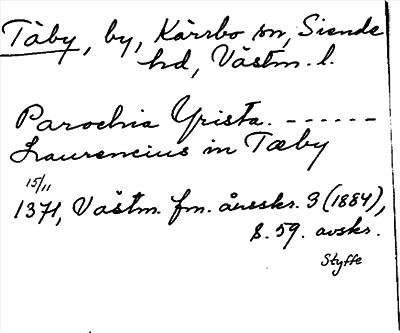 Täby, by, Kärrbo sn, Siende
hd, Västm. l.
Parochia Yrista. ------
Laurencius in Tæby
15/11
1371, Västm. fm. årsskr. 3 (1884),
s. 59. avskr.
Styffe